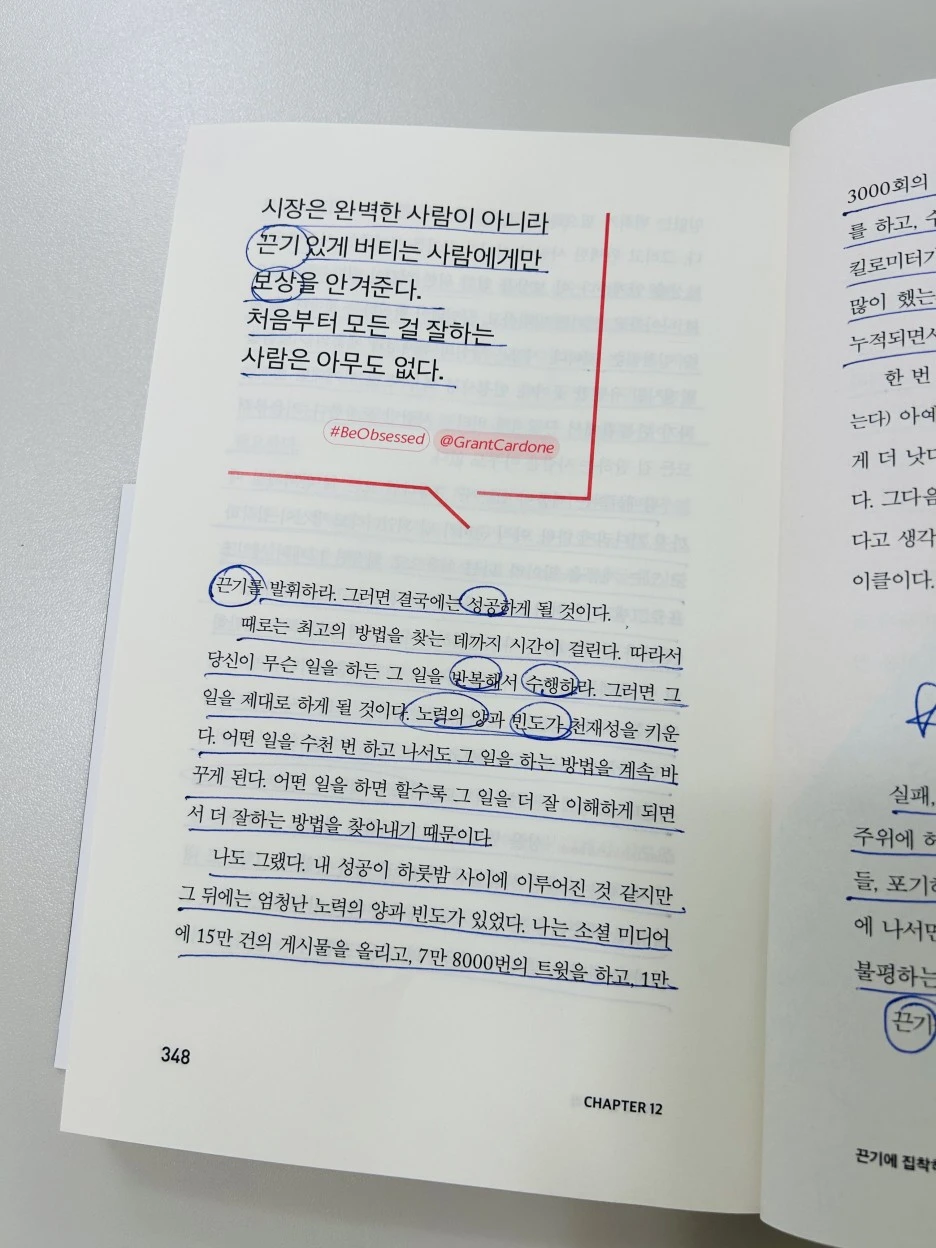 시장은 완벽한 사람이 아니라
끈기 있게 버티는 사람에게만
보상을 안겨준다.
처음부터 모든 걸 잘하는
사람은 아무도 없다.
#BeObsessed @GrantCardone
끈기를 발휘하라. 그러면 결국에는 성공하게 될 것이다.
때로는 최고의 방법을 찾는 데까지 시간이 걸린다. 따라서
당신이 무슨 일을 하든 그 일을 반복해서 수행하라. 그러면 그
일을 제대로 하게 될 것이다. 노력의 양과 빈도가 천재성을 키운
다. 어떤 일을 수천 번 하고 나서도 그 일을 하는 방법을 계속 바
꾸게 된다. 어떤 일을 하면 할수록 그 일을 더 잘 이해하게 되면
서 더 잘하는 방법을 찾아내기 때문이다
나도 그랬다. 내 성공이 하룻밤 사이에 이루어진 것 같지만
그 뒤에는 엄청난 노력의 양과 빈도가 있었다. 나는 소셜 미디어
에 15만 건의 게시물을 올리고, 7만 8000번의 트윗을 하고, 1만
348
CHAPTER 12
3000회의
를 하고,
킬로미터
많이 했는
누적되면서
한 번
는다) 아예
게 더 낫다
다. 그다음
다고 생각
이클이다.
실패,
주위에
들, 포기
에 나서면
불평하는
끈기
끈기에 집착하